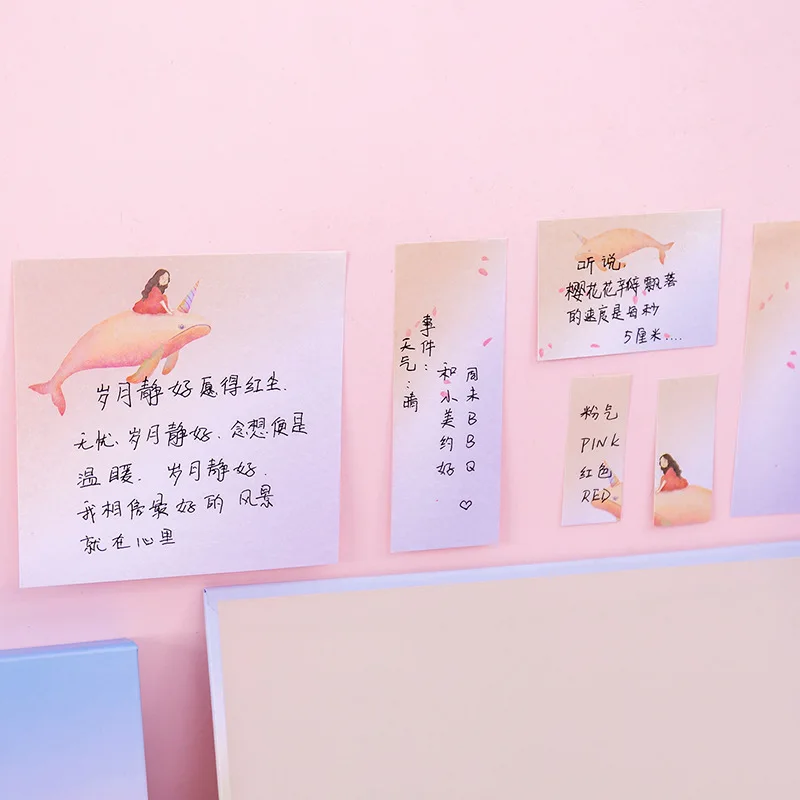 岁月静好愿得红尘.
无忧、岁月静好.念想便是
温暖. 岁月静好.
我相信最好的风景
就在心里
天气：晴
事件：
和小美约好
周末BBQ♡
听说,
樱花花瓣飘落
的速度是每秒
5厘米....
粉气
PINK
红色
RED